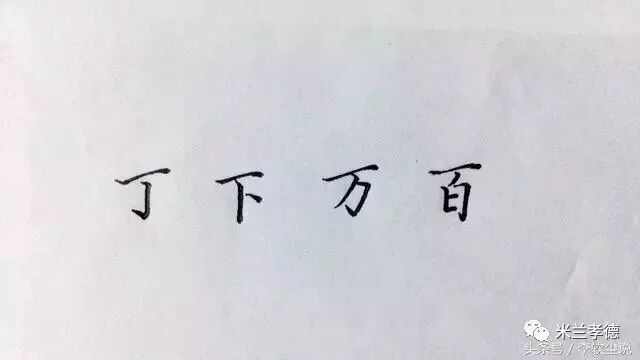 丁下万百
米兰孝德
头条号／李钦尘说